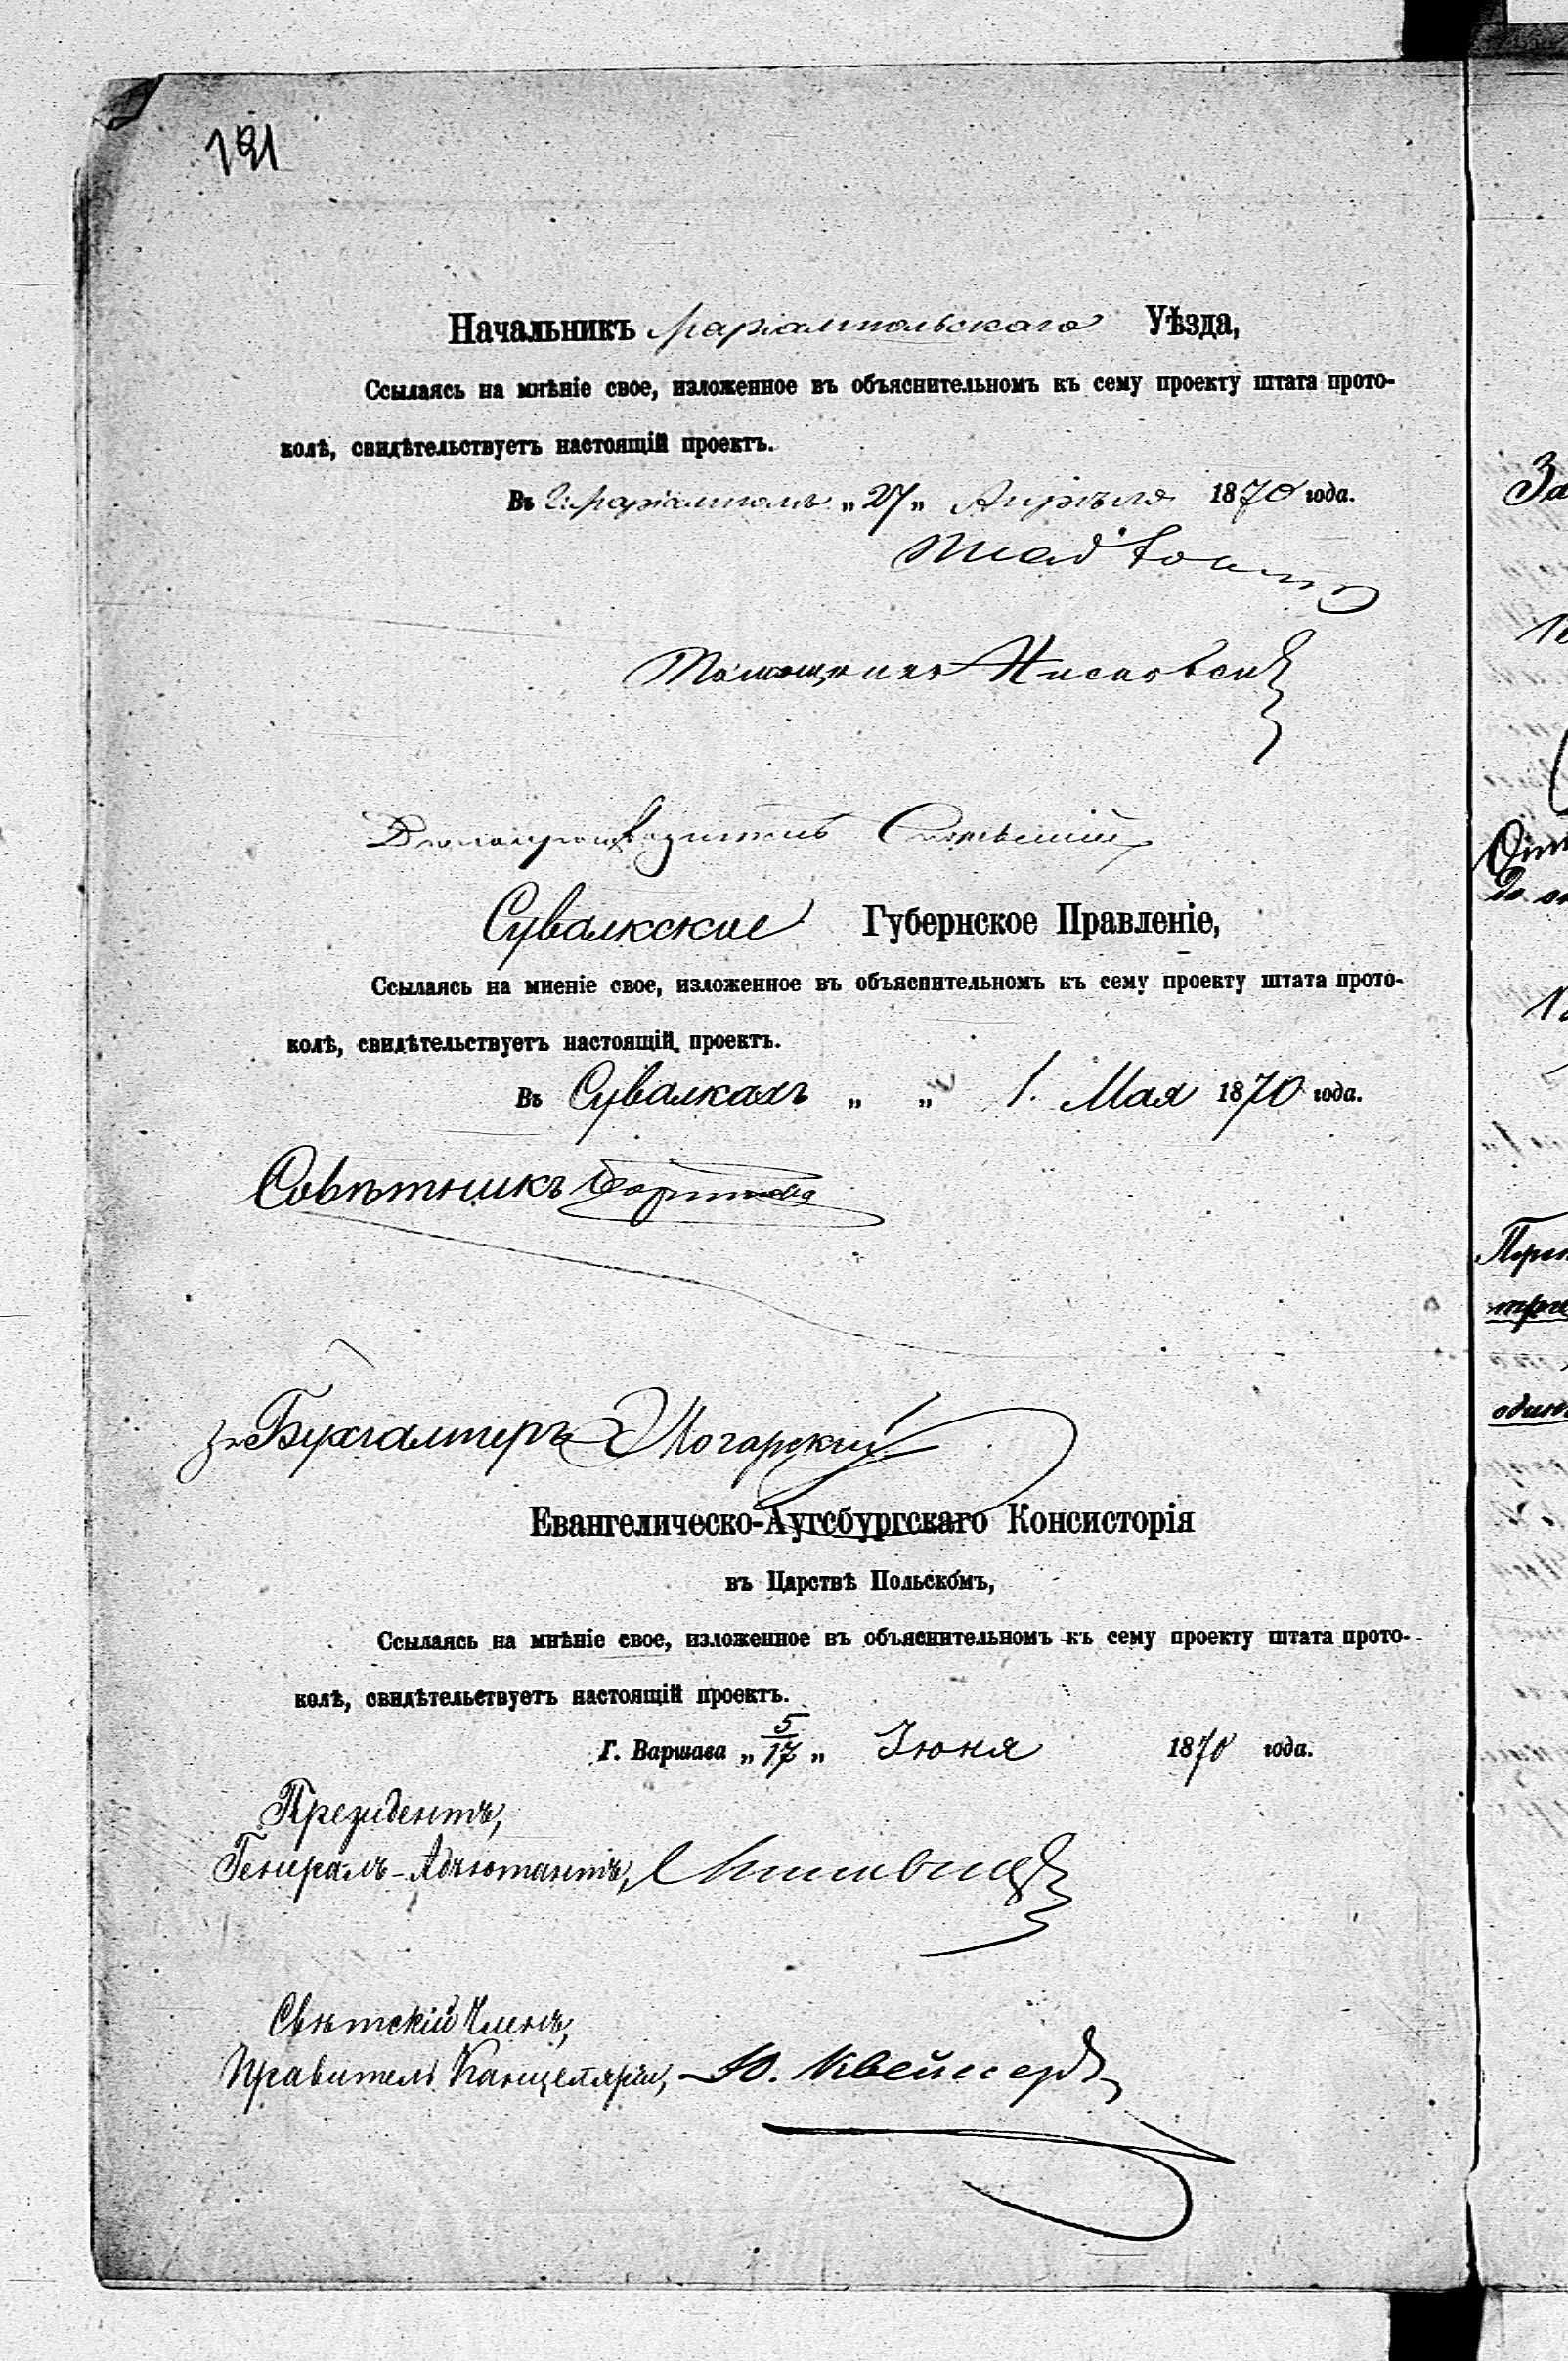 121
Начальникъ Маріампольскаго Уѣзда,
Ссылаясь на мнѣніе свое, изложенное въ объяснительномъ къ сему проекту штата прото-
колѣ, свидѣтельствуетъ настоящій проектъ.
Въ г. Маріамполь „27„ Апрѣля 1870 года.
Помощникъ
Дѣлопроизводитель
Сувалкское Губернское Правленіе,
Ссылаясь на мненіе свое, изложенное въ объяснительномъ къ сему проекту штата прото-
колѣ, свидѣтельствуетъ настоящій проектъ.
Въ Сувалкахъ „ „ 1. Мая 1870 года.
Совѣтникъ
Бухгалтеръ
Евангелическо-Аугсбургскаго Консисторія
въ Царствѣ Польскомъ,
Ссылаясь на мнѣніе свое, изложенное въ объяснительномъ къ сему проекту штата прото-
колѣ, свидѣтельствуетъ настоящій проектъ.
Г. Варшава „5/17„ Іюня 1870 года.
Президентъ,
Генералъ-Адъютантъ,
Свѣтскій Членъ,
Правитель Канцеляріи, Ю.